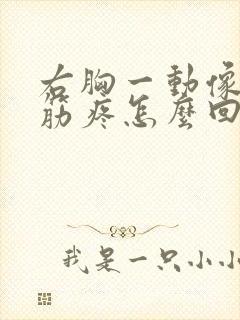 右胸一動像
筋疼怎麼回
我是一只小小